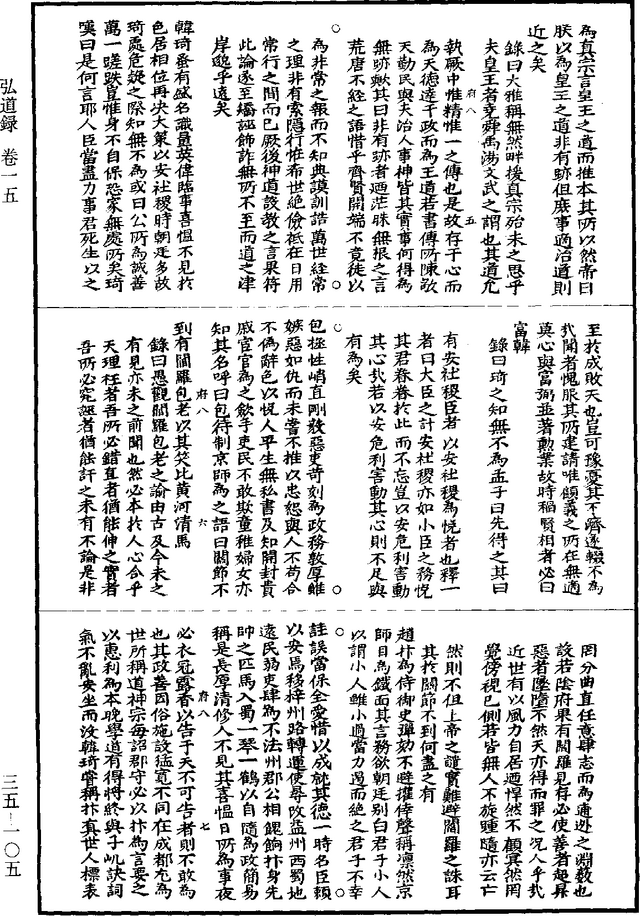 為真宗言皇王之道而推本其所以然帝曰
朕以為皇王之道非有跡但庶事適治道則
近之矣
錄曰大雅稱無然畔援真宗殆未之思乎
夫皇王者堯舜禹湯文武之謂也其道允
執厥中惟精惟一之傳也是故存于心而
府八 五
為天德達于政而為王道若書傳所陳敬
天勤民與夫治人事神皆其實事何得為
無跡歟其曰非有跡者迺茫昧無根之言
荒唐不經之語惜乎齊賢開端不竟徒以
○
為非常之報而不知典謨訓誥萬世經常
之理非有索隱行怪希世絶儉祇在日用
常行之間而已厥後神道設教之言果符
此論遂至矯誣飾詐無所不至而道之津
岸邈乎遠矣
韓琦蚤有盛名識量英偉臨事喜慍不見於
色居相位再决大策以安社稷時朝廷多故
琦處危疑之際知無不為或曰公所為誠善
萬一蹉跌豈惟身不自保恐家無處所矣琦
嘆曰是何言耶人臣當盡力事君死生以之
至於成敗天也豈可豫憂其不濟遂輟不為
哉聞者愧服其所建請唯顧義之所在無適
莫心與富弼並著勳業故時稱賢相者必曰
富韓
錄曰琦之知無不為孟子曰先得之其曰
有安社稷臣者以安社稷為悅者也釋
者曰大臣之計安社稷亦如小臣之務悅
其君眷眷於此而不忘豈以安危利害動
其心哉若以安危利害動其心則不足與
有為矣
○
包拯性峭直剛敎惡吏苛刻為政務敦厚雖
嫉惡如仇而未嘗不推以忠恕與人不苟合
不偽辭色以悅人平生無私書及知開封貴
戚宦官為之歛手吏民不敢欺童稚婦女亦
知其名呼曰包待制京師為之語曰關節不
府八 六
到有閻羅包老以其笑比黄河清焉
錄曰愚觀閻羅包老之諭由古及今未之
有見亦未之前聞也然必本於人心合乎
天理枉者吾所必錯直者猶能伸之實者
吾所必究誣者猶能訐之未有不論是非
罔分曲直任意肆志而為逋逃之淵藪也
設若陰府果有閻羅見存必使善者超昇
惡者墜墮不然天亦得而罪之况人乎哉
近世有以風力自居迺悍然不顧冥然罔
覺傍視已側若皆無人不旋踵隨亦云亡
然則不但上帝之證實難避閻羅之誅耳
其於關節不到何盡之有
○
趙抃為侍御史彈劾不避權倖聲稱凛然京
師目為鐵面其言務欲朝廷别白君子小人
以謂小人雖小過當力遏而絶之君子不幸
詿誤當保全愛惜以成就其德一時名臣賴
以安焉移梓州路轉運使尋改益州西蜀地
遠民弱吏肆為不法州郡公相餽餉抃身先
帥之匹馬入蜀一琴一鶴以自隨為政簡易
稱是長厚清修人不見其喜慍日所為事夜
府八 七
必衣冠露香以告于天不可告者則不敢為
也其政善因俗施設猛寛不同在成都尤為
世所稱道神宗每詔郡守必以抃為言要之
以惠利為本晚學道有得將終與子屼訣詞
氣不亂安坐而没韓琦嘗稱抃真世人標表
弘道録 卷一五
三五—一〇五